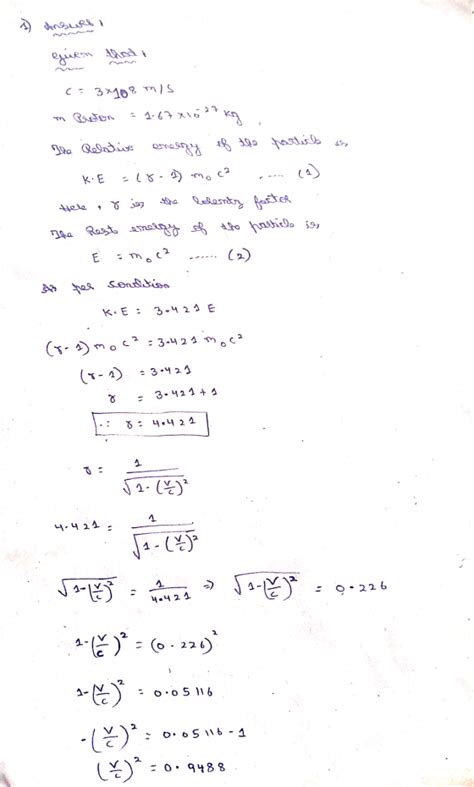 1) Answer,
Given that,
c = 3×10^8 m/s
m Proton = 1.67 × 10^-27 kg
The Relative energy of the particle is,
K.E = (γ - 1) m₀c² ..... (1)
Here, γ is the Lorentz factor
The Rest energy of the particle is,
E = m₀c² ...... (2)
As per condition
K.E = 3.421 E
(γ-1) m₀c² = 3.421 m₀c²
(γ-1) = 3.421
γ = 3.421 + 1
∴ γ = 4.421
γ = 1/√(1-(v/c)²)
4.421 = 1/√(1-(v/c)²)
√(1-(v/c)²) = 1/4.421 ⇒ √(1-(v/c)²) = 0.226
1-(v/c)² = (0.226)²
1-(v/c)² = 0.05116
-(v/c)² = 0.05116 - 1
(v/c)² = 0.9488